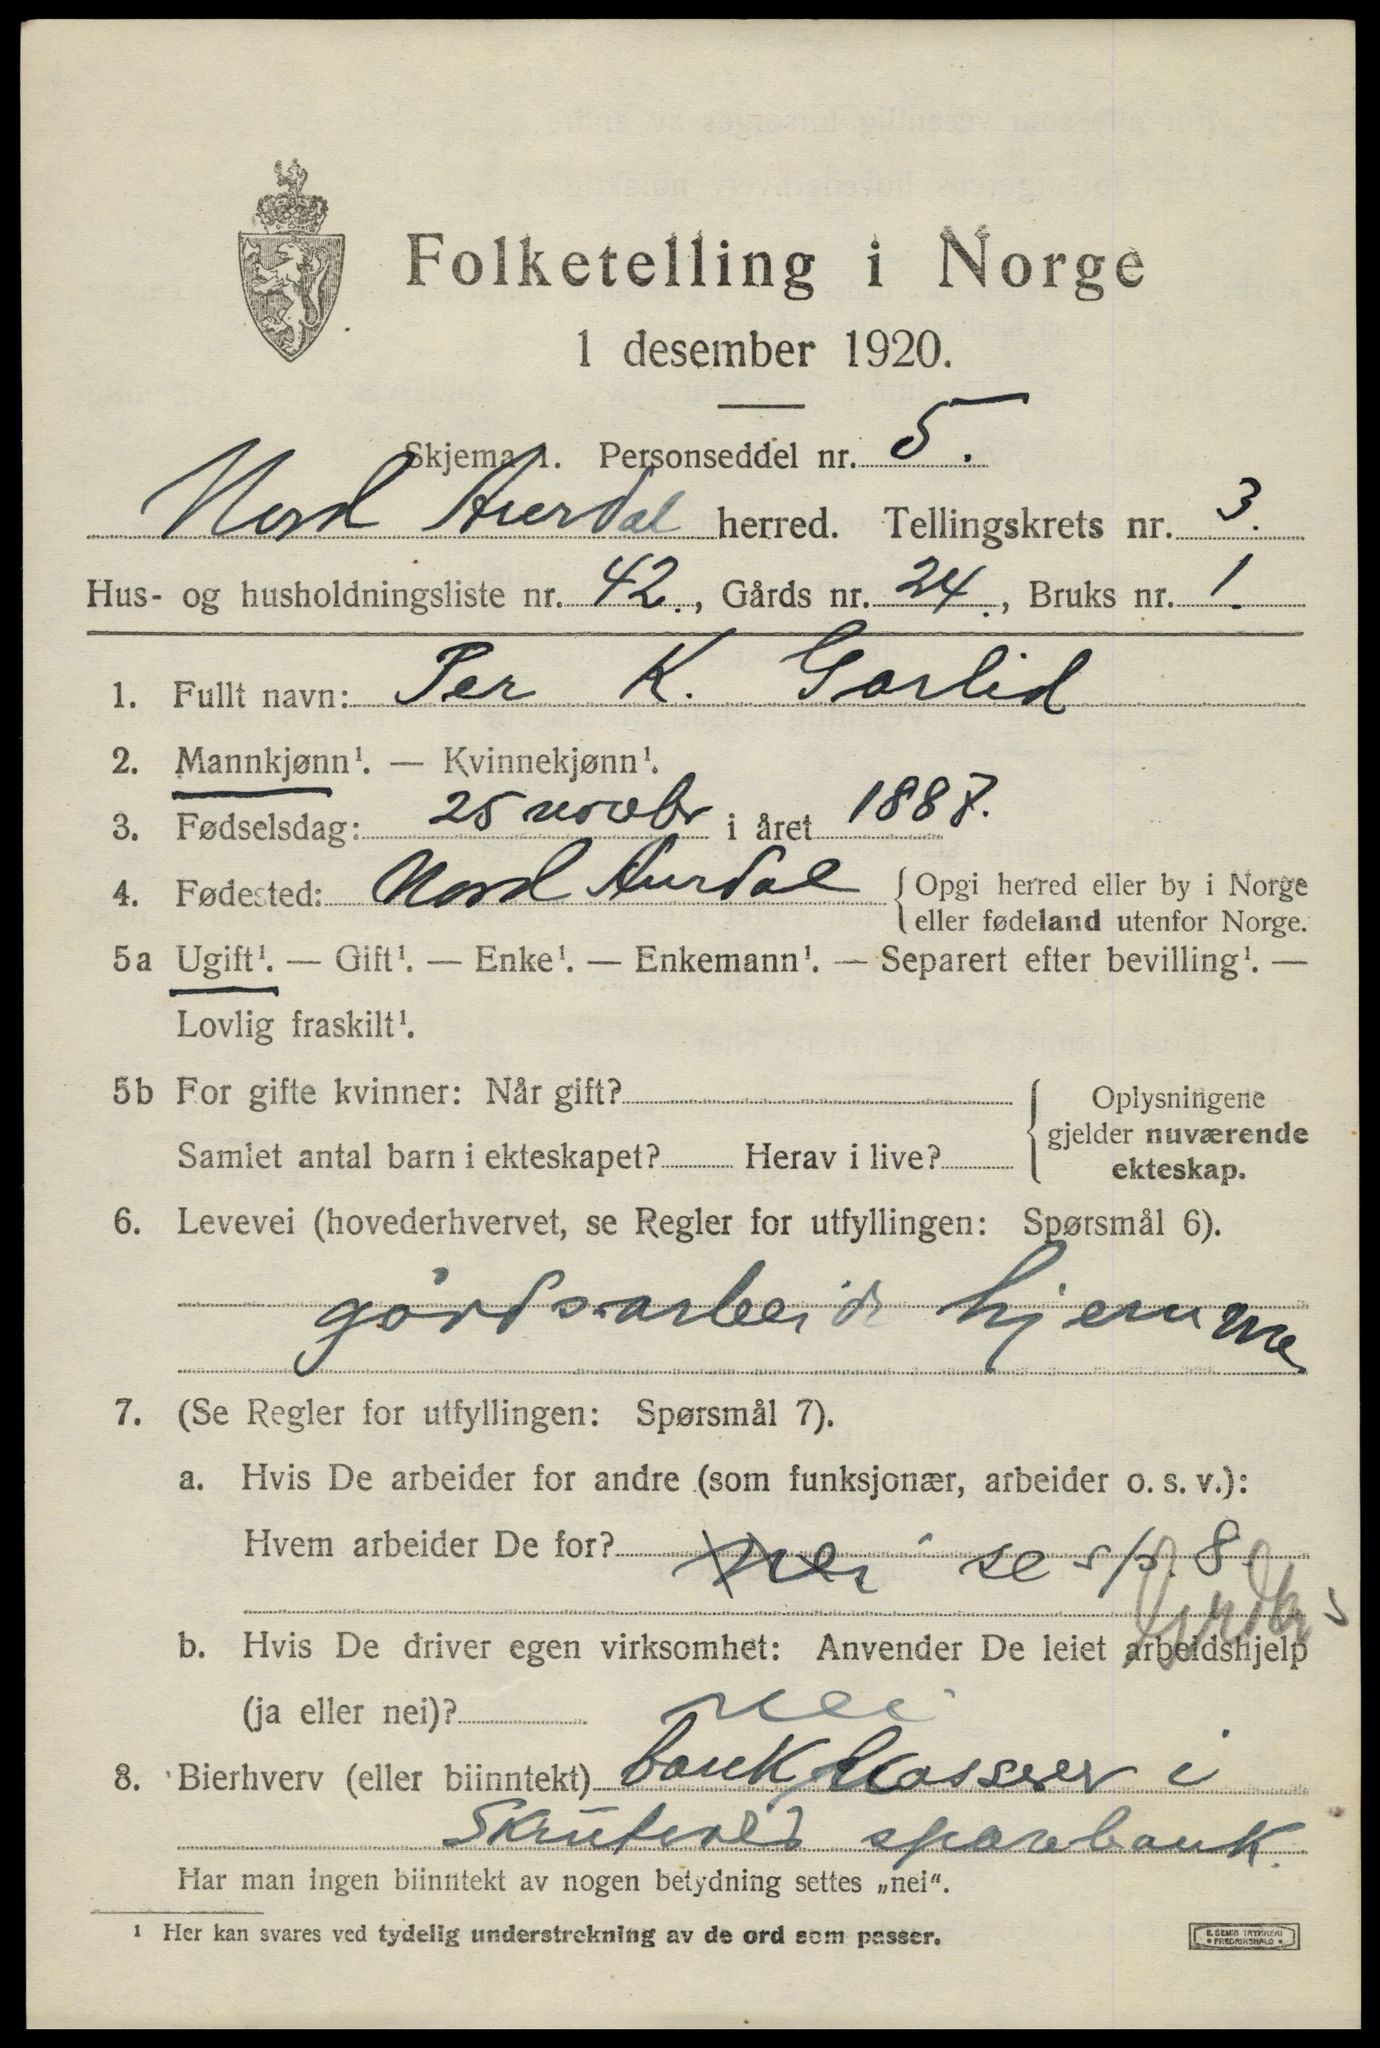 Folketelling i Norge
1 desember 1920.
Skjema 1. Personseddel nr. 5.
Nord Aurdal herred. Tellingskrets nr. 3.
Hus- og husholdningsliste nr. 42., Gårds nr. 24., Bruks nr. 1.
1. Fullt navn: Per K. Garlid
2. Mannkjønn¹. — Kvinnekjønn¹.
3. Fødselsdag: 25 novebr i året 1887.
4. Fødested: Nord Aurdal { Opgi herred eller by i Norge
eller fødeland utenfor Norge.
5a Ugift¹. — Gift¹. — Enke¹. — Enkemann¹. — Separert efter bevilling¹. —
Lovlig fraskilt¹.
5b For gifte kvinner: Når gift? { Oplysningene
gjelder nuværende
Samlet antal barn i ekteskapet? Herav i live?
ekteskap.
6. Levevei (hovederhvervet, se Regler for utfyllingen: Spørsmål 6).
gårdsarbeide hjemme
7. (Se Regler for utfyllingen: Spørsmål 7).
a. Hvis De arbeider for andre (som funksjonær, arbeider o. s. v.):
Hvem arbeider De for? nei se sp. 8.
b. Hvis De driver egen virksomhet: Anvender De leiet arbeidshjelp
(ja eller nei)? nei
8. Bierhverv (eller biinntekt) bankkasserer i
Skrutvold sparebank.
Har man ingen biinntekt av nogen betydning settes „nei".
¹ Her kan svares ved tydelig understrekning av de ord som passer.
E. SEMS TRYKKERI
• FREDRIKSHALD •